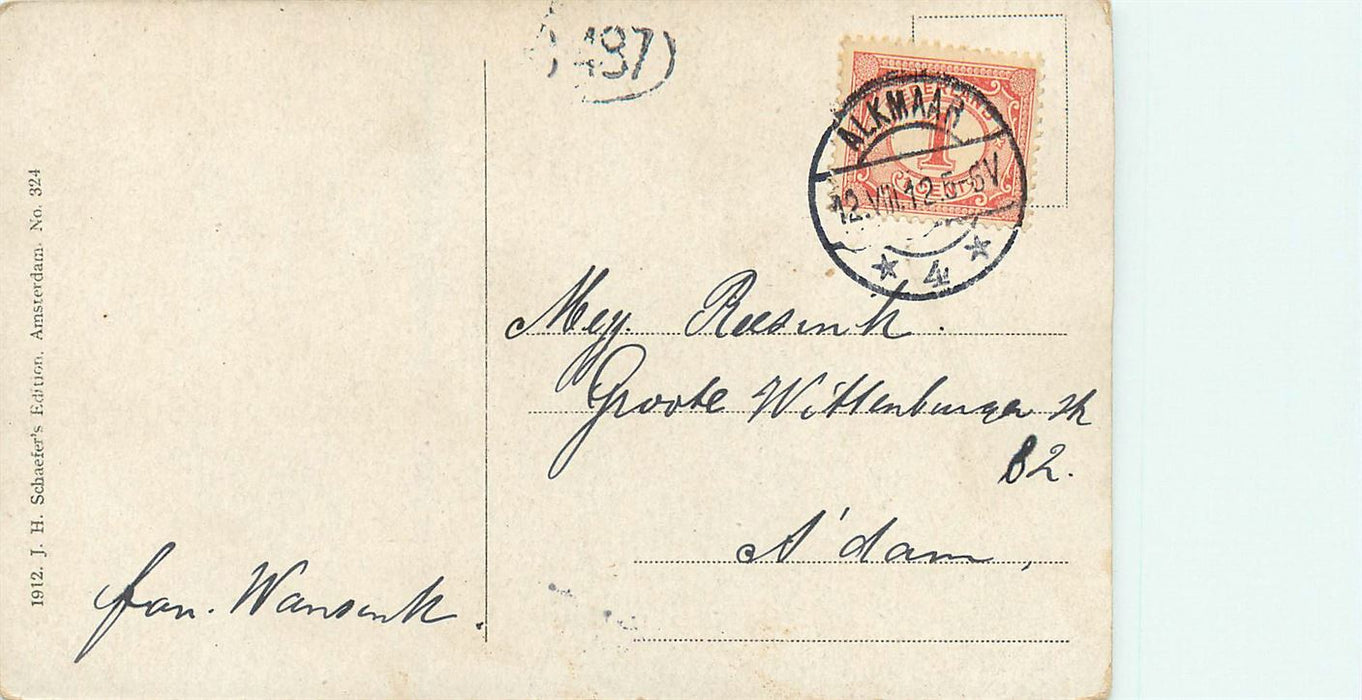 1912. J. H. Schaefer's Edition, Amsterdam. No. 324
487)
NEDERLAND
1
CENT
ALKMAAR
12.VIII.12.5-6V
4
Mej. Reesink.
Groote Wittenburger str
82.
A'dam,
fam. Wansink.